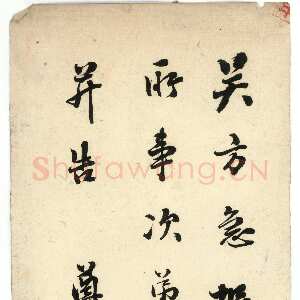 吴方急
所事次弟
并告尊
Shufawang.CN